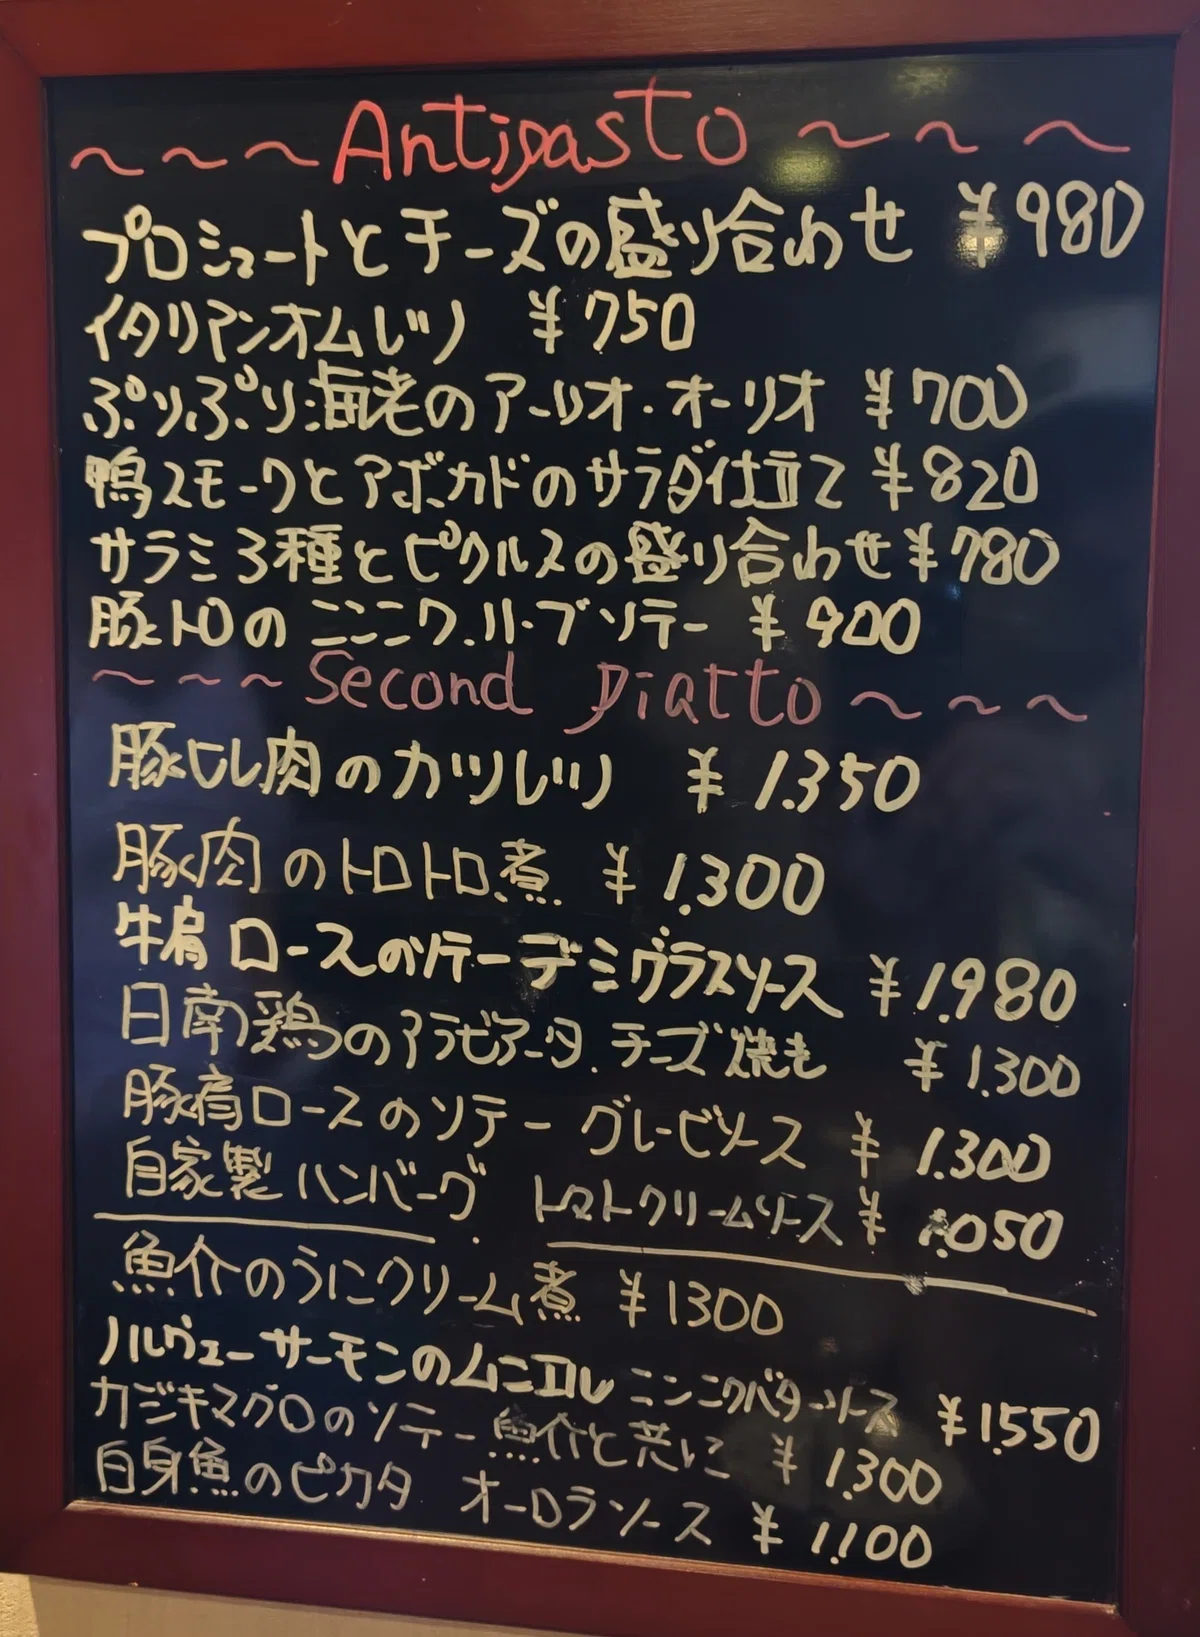 ~~~Antipasto~~~
プロシュートとチーズの盛り合わせ ¥980
イタリアンオムレツ ¥750
ぷりぷり海老のアーリオ・オーリオ ¥700
鴨スモークとアボカドのサラダ仕立て ¥820
サラミ3種とピクルスの盛り合わせ ¥780
豚トロのニンニク.ハーブソテー ¥900
~~~Second Piatto~~~
豚ヒレ肉のカツレツ ¥1.350
豚肉のトロトロ煮 ¥1.300
牛肩ロースのソテーデミグラスソース ¥1.980
日南鶏のアラビアータ.チーズ焼き ¥1.300
豚肩ロースのソテー グレービソース ¥1.300
自家製ハンバーグ. トマトクリームソース ¥1.050
魚介のうにクリーム煮 ¥1300
ノルウェーサーモンのムニエル ニンニクバターソース ¥1.550
カジキマグロのソテー魚介と共に ¥1.300
白身魚のピカタ オーロラソース ¥1.100